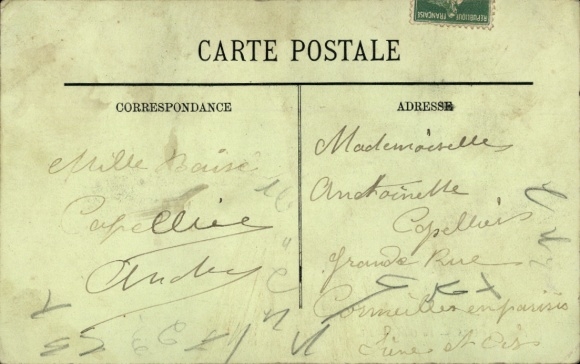 REPUBLIQUE FRANÇAISE
CARTE POSTALE
CORRESPONDANCE
Mille Baisé
Capellier
André
ADRESSE
Mademoiselle
Anthoinette
Capelliers
Grande Rue
Cormeilles en parisis
Seine et Oise